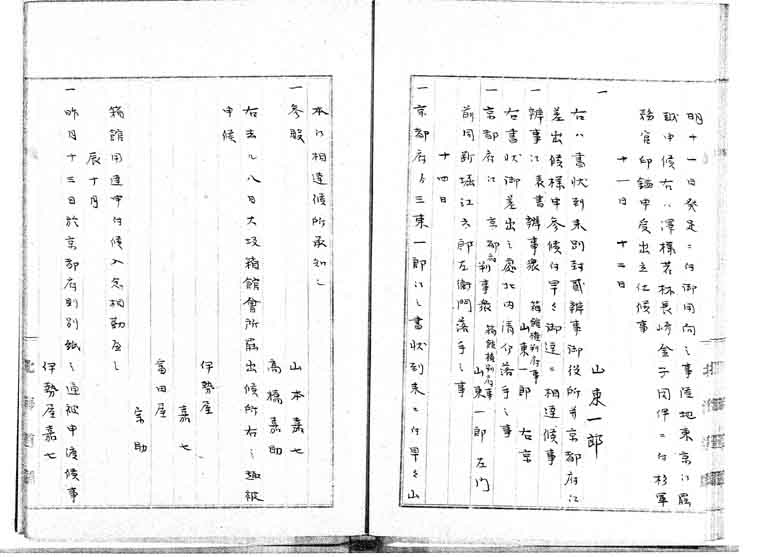 明十一日発足ニ付御用向之事陸地東京江屆
越申候右ハ澤様若林長崎金子同伴ニ付杉軍
務官印鑑申受出立仕候事
十一日 十二日
一 山東一郎
右ハ書状到来別封貳辨事御役所并京都府江
差出候様申参候付早々御達ニ相達候事
一 辨事江表書 辨事衆 箱館権判府事 山東一郎 右京
右書状御差出之處北内清介落手之事
一 京都府江 京都府判事衆 箱館権判府事 山東一郎 左門
前同断堀江六郎左衛門落手之事
十四日
一 京都府ゟ三東一郎江之書状到来ニ付早々山
本江相達候所承知之
一 参殿 山本嘉七
高橋嘉助
右去ル八日大坂箱館會所屆出候所右之趣被
申候
伊勢屋
嘉七
富田屋
宗助
箱館用達申付候入念相勤並之
辰十月
一 昨月十三日於京都府判別紙之通被申渡候事
伊勢屋嘉七